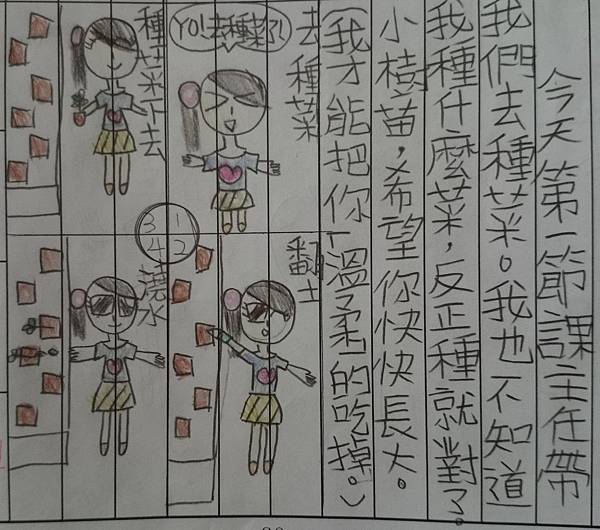 今天第一節課主任帶
我們去種菜。我也不知道
我種什麼菜，反正種就對了。
小植苗，希望你快快長大。
(我才能把你「溫柔」的吃掉。)
去種菜
YO!去種菜了!
翻土
種菜下去
澆水
1
2
3
4